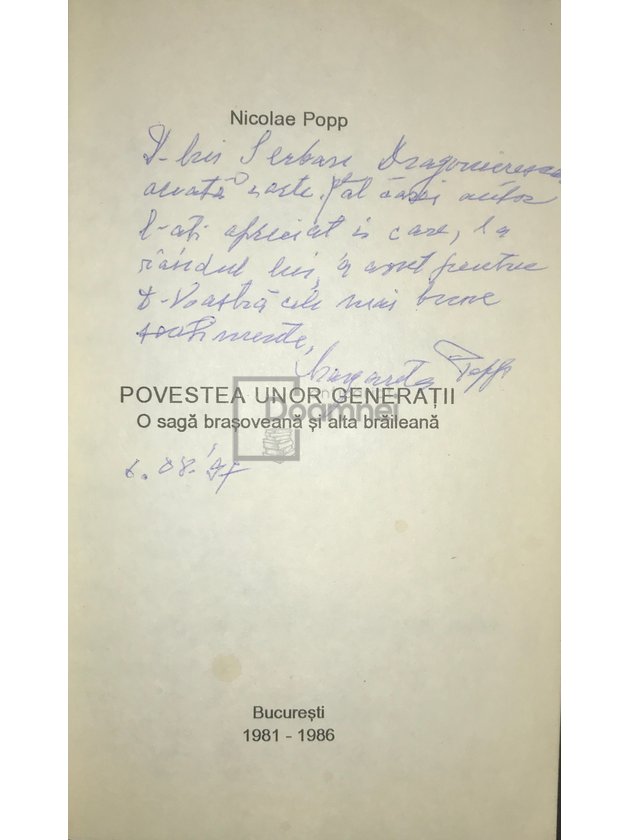 Nicolae Popp
D-lui Serban Dragomirescu
această carte, al cărei autor
l-ați apreciat și care, la
rândul lui, a avut pentru
D-Voastră cele mai bune
sentimente,
Margareta Popp
POVESTEA UNOR GENERAȚII
O sagă brașoveană și alta brăileană
Doamnei
6.08.'97
București
1981 - 1986